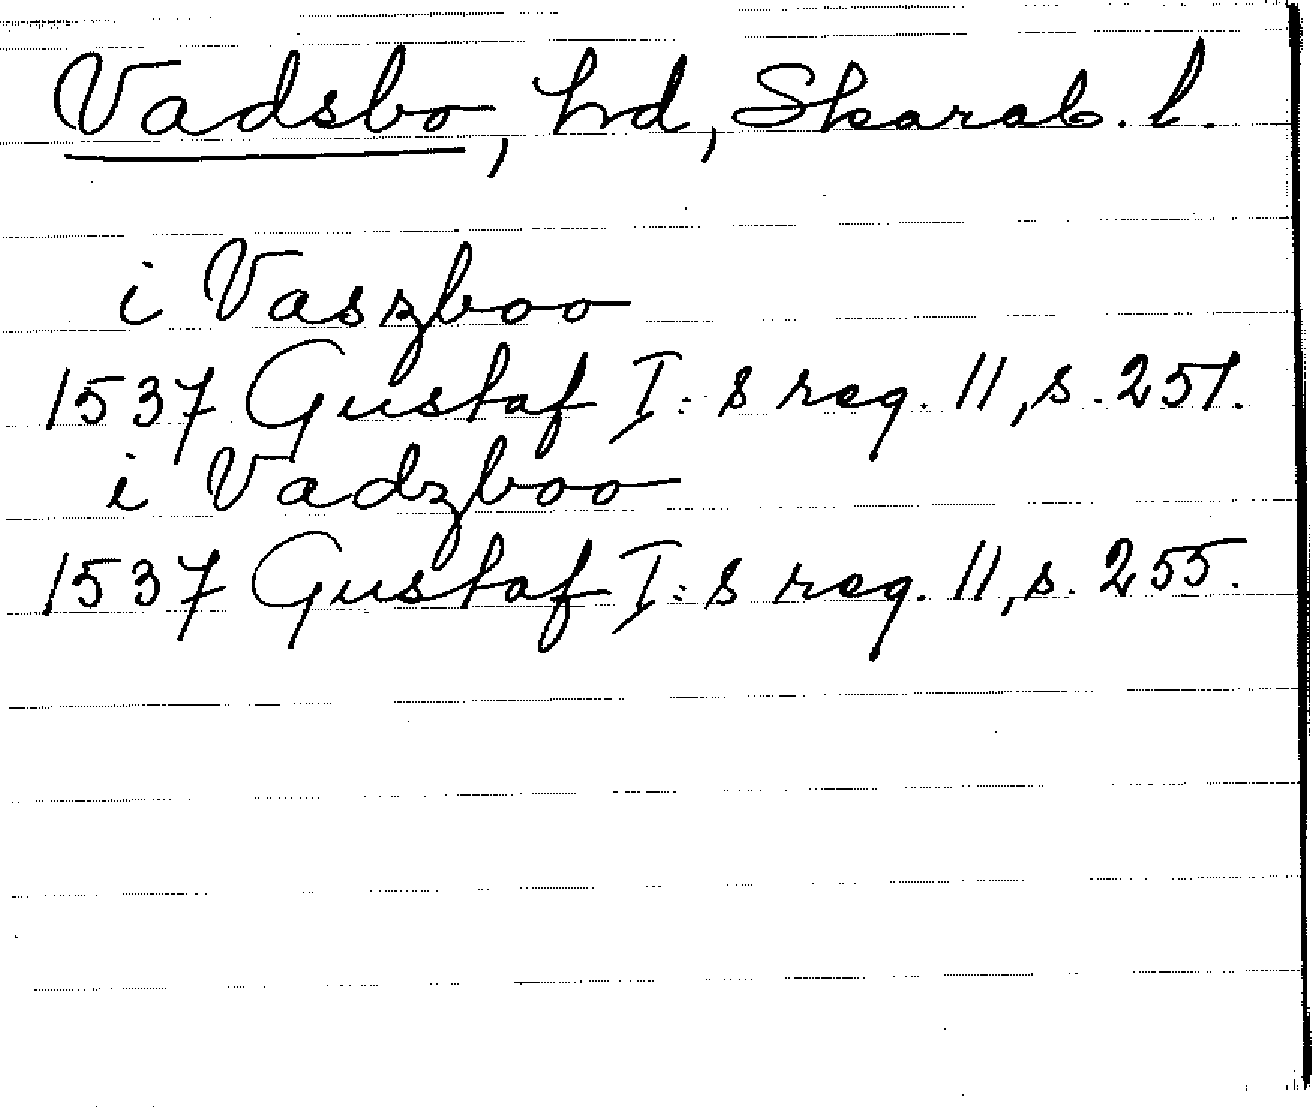 Vadsbo, hd, Skarab. l.
i Vaszboo
1537 Gustaf I:s reg. 11, s. 251.
i Vadzboo
1537 Gustaf I:s reg. 11, s. 255.